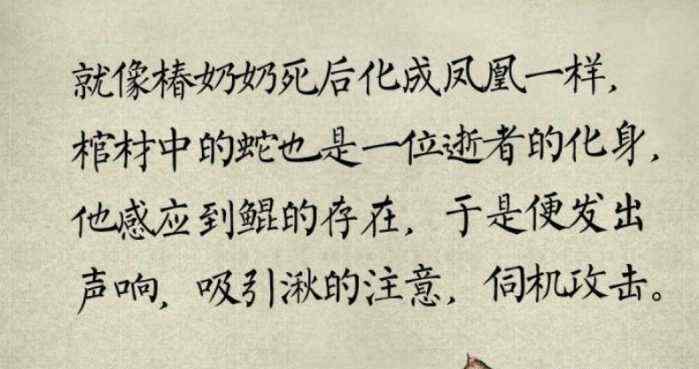 就像椿奶奶死后化成凤凰一样，
棺材中的蛇也是一位逝者的化身，
他感应到鲲的存在，于是便发出
声响，吸引湫的注意，伺机攻击。